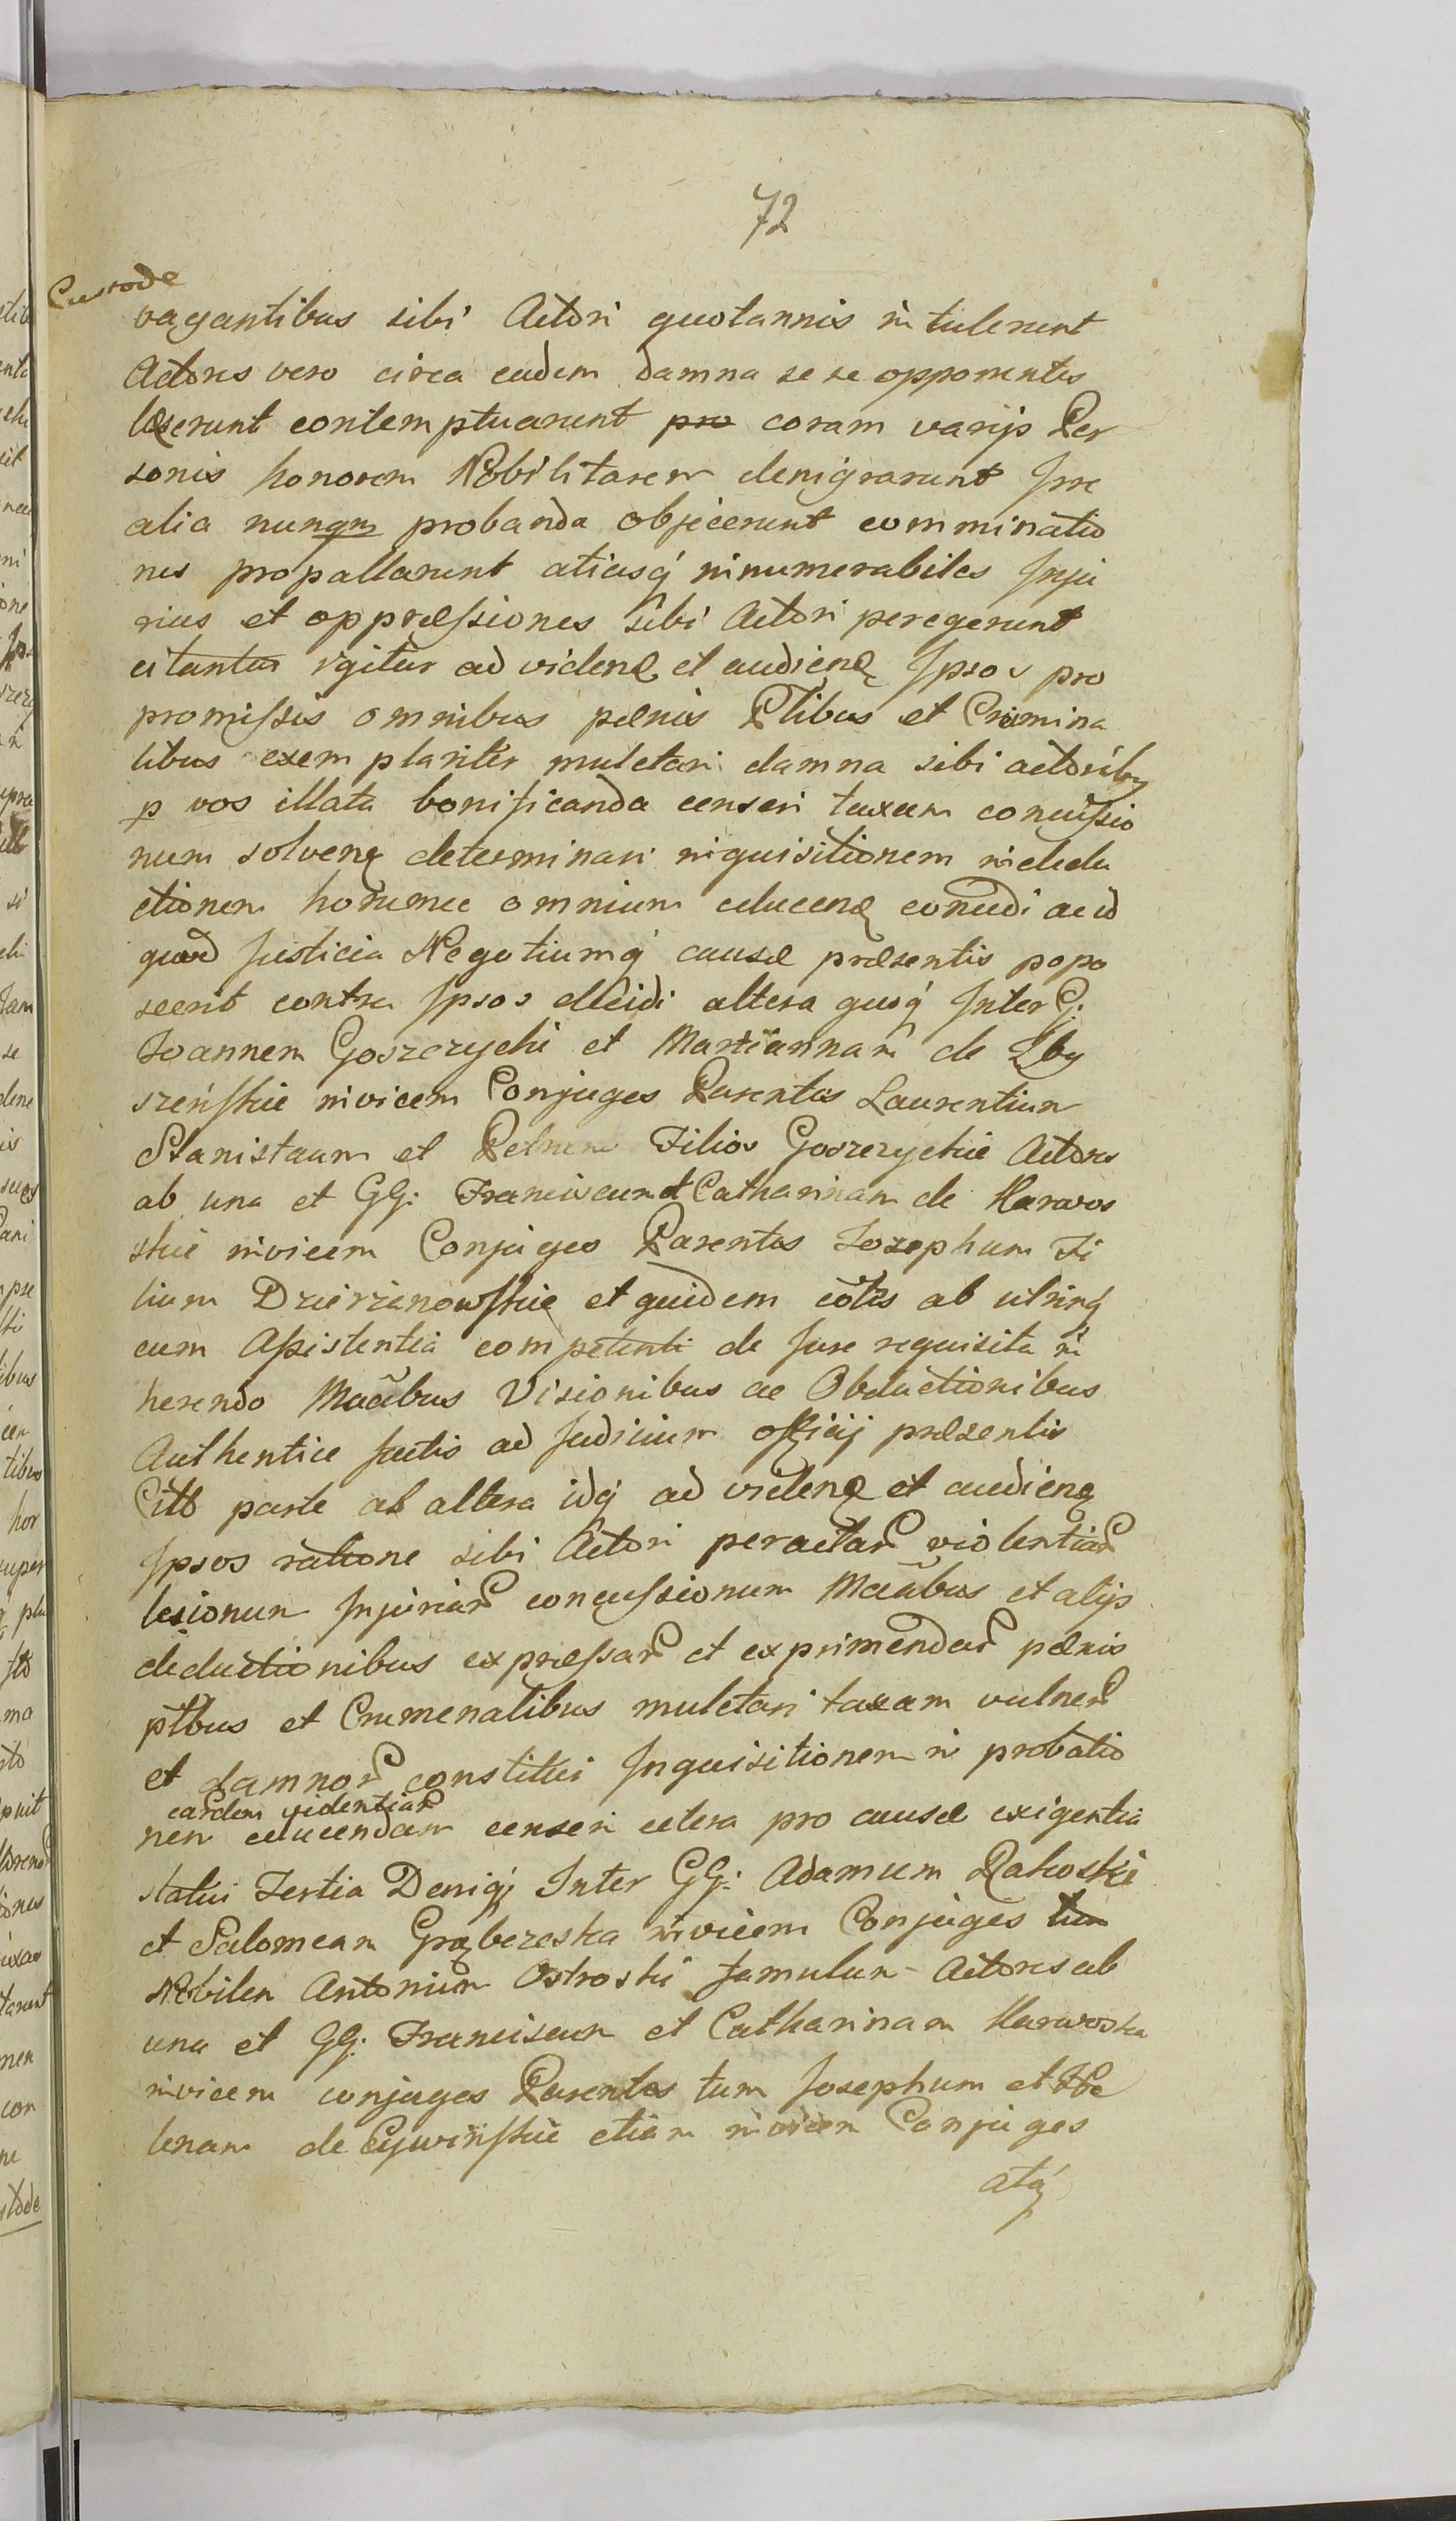 72
Custode
vagantibus sibi Actori quotannis intulerunt
Actores vero circa eadem damna se se opponentes
læserunt contemptuarunt pro coram varijs Per
sonis honorem Nobilitarem denigrarunt Irre
alia nunqm probanda objicerunt comminatio
nes propallarunt aliasq́ innumerabiles Inju
rias et oppræssiones sibi Actori peregerunt
citantur igitur ad videnɖ et audienɖ Ipsos pro
promissis omnibus pænis Plibus et Crimina
libus exemplariter mulctari damna sibi actoribɜ
p vos illata bonificanda censeri taxam concussio
num solvenɖ determinari inquisitionem in dedu
ctionem horumce omnium educenɖ concedi ac id
quod Justicia Negotiumq́ causæ præsentis popo
scerit contra Ipsos decidi altera quoq́ Inter G:
Joannem Goszczychi et Mariannam de Zby
szeńskie invicem Conjuges Parentes Laurentium
Stanislaum et Petrum Filios Goszczyckie Actores
ab una et GG: Franciscum et Catharinam de Karwos
skie invicem Conjuges Parentes Josephum Fi
lium Dzierzanowskie et quidem cõtos ab utrinq́
cum Assistentia competenti de Jure requisita in
herendo Mãcibus Visionibus ac Obductionibus
Authentice factis ad Judicium officij præsentis
Citt parte ab altera idq́ ad videnɖ et audienɖ
Ipsos ratione sibi Actori peractarꝰ violentiarꝰ
lesionum Injuriarꝰ concussionum Mãcibus et alijs
deductionibus expræssarꝰ et exprimendarꝰ pænis
plbus et Crumenalibus mulctari taxam vulnerꝰ
et damnorꝰ constitui Inquisitionem in probatio
eardem videntiarꝰ
nem educendam censeri cetera pro causæ exigentia
statui Tertia Deniq́ Inter GG: Adamum Rakoski
et Salomeam Grąbczeska invicem Conjuges tum
Nobilem Antonium Ostroski famulum Actores ab
una et GG: Franciscum et Catharinam Karwoska
invicem conjuges Parentes tum Josephum et He
lenam de Cywińskie etiam invicem Conjuges
atq́